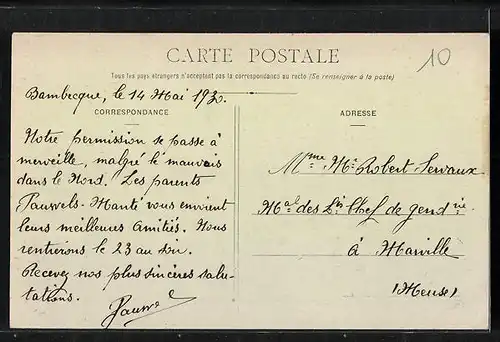 CARTE POSTALE
10
Tous les pays étrangers n'acceptent pas la correspondance au recto (Se renseigner à la poste)
Bambecque, le 14 Mai 1930.
CORRESPONDANCE
Notre permission se passe à
merveille, malgré le mauvais
dans le Nord. Les parents
Pauwels-Manté vous envoient
leurs meilleures amitiés. Nous
rentrerons le 23 au soir.
Recevez nos plus sincères salu-
tations.
ADRESSE
Mme Robert Servaux
Mal des Lis Chef de gendie
à Marville
(Meuse)